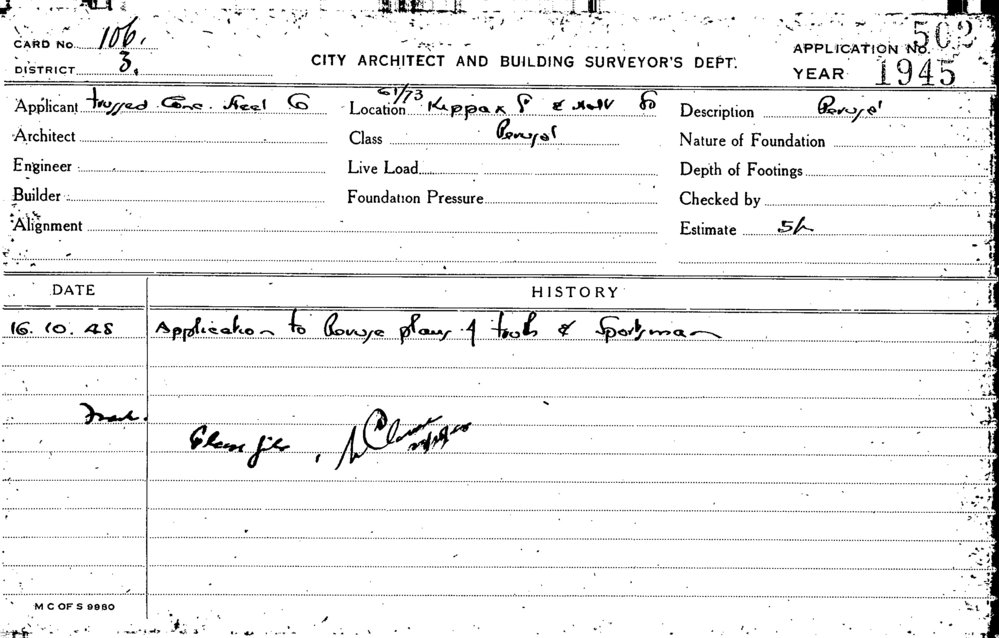 CARD No. 106.
DISTRICT 3.
CITY ARCHITECT AND BUILDING SURVEYOR'S DEPT.
APPLICATION No. 502
YEAR 1945
Applicant Trussed Conc. Steel Co
Location 61/73 Kippax St & Holt St
Description Perusal
Architect
Class Perusal
Nature of Foundation
Engineer
Live Load
Depth of Footings
Builder
Foundation Pressure
Checked by
Alignment
Estimate 5/-
DATE
HISTORY
16. 10. 45 Application to Peruse plans of Truth & Sportsman
Please file,
M C OF S 9980